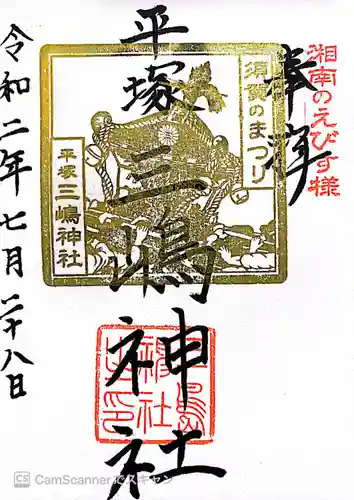 湘南のえびす様
奉拝
須賀のまつり
平塚三嶋神社
平塚
三嶋神社
令和二年七月二十八日
CS CamScannerでスキャン